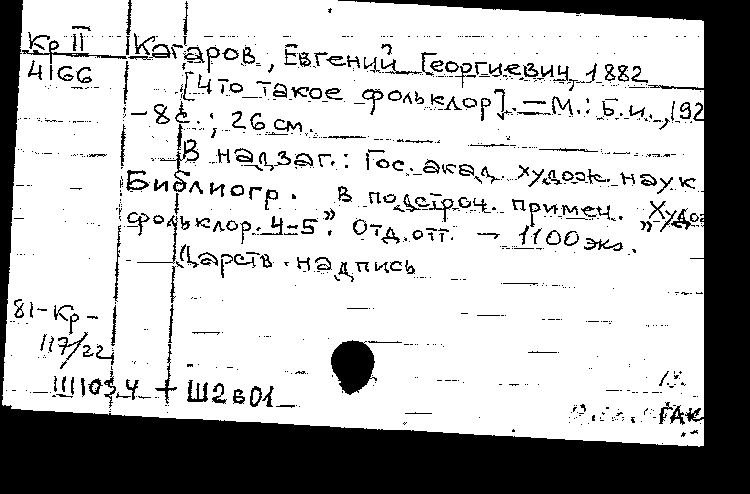 Кр II
4166
Кагаров, Евгений Георгиевич, 1882
[Что такое фольклор]. — М.: Б.и., 192
– 8с.; 26 см.
В надзаг.: Гос. акад. худож. наук
Библиогр. в подстроч. примеч. "Худож
фольклор. 4-5". Отд. отт. — 1100 экз.
Дарств. надпись
81-Кр-
117/22
Ш103.4 + Ш2в01
13.
ГАК